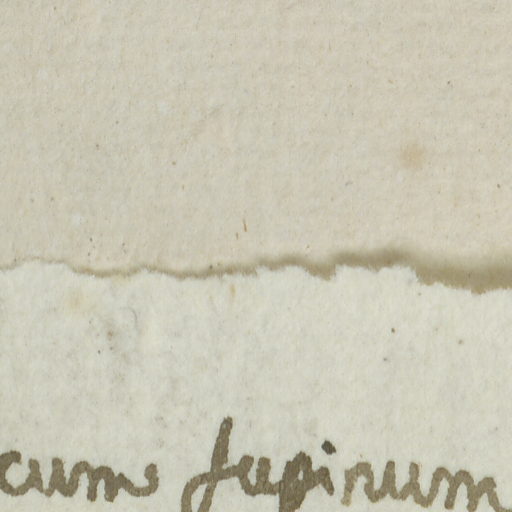 cum supinum